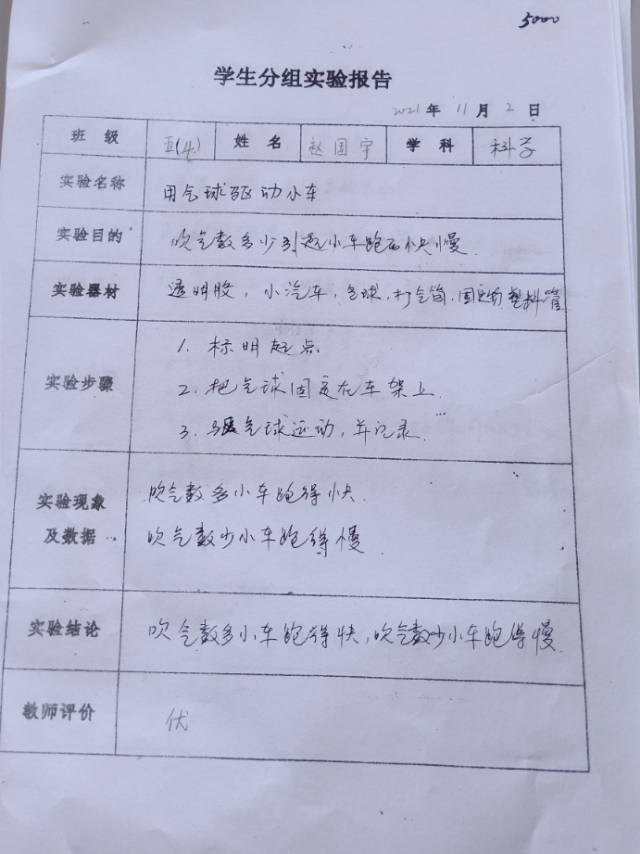 5000
学生分组实验报告
2021年11月2日
班级 五(4) 姓名 赵国宇 学科 科学
实验名称 用气球驱动小车
实验目的 吹气数多少引起小车跑的快慢
实验器材 透明胶,小汽车,气球,打气筒,塑料管
实验步骤
1. 标明起点
2. 把气球固定在车架上
3. 气球运动,并记录
实验现象
及数据
吹气数多小车跑得快.
吹气数少小车跑得慢
实验结论 吹气数多小车跑得快,吹气数少小车跑得慢.
教师评价 优